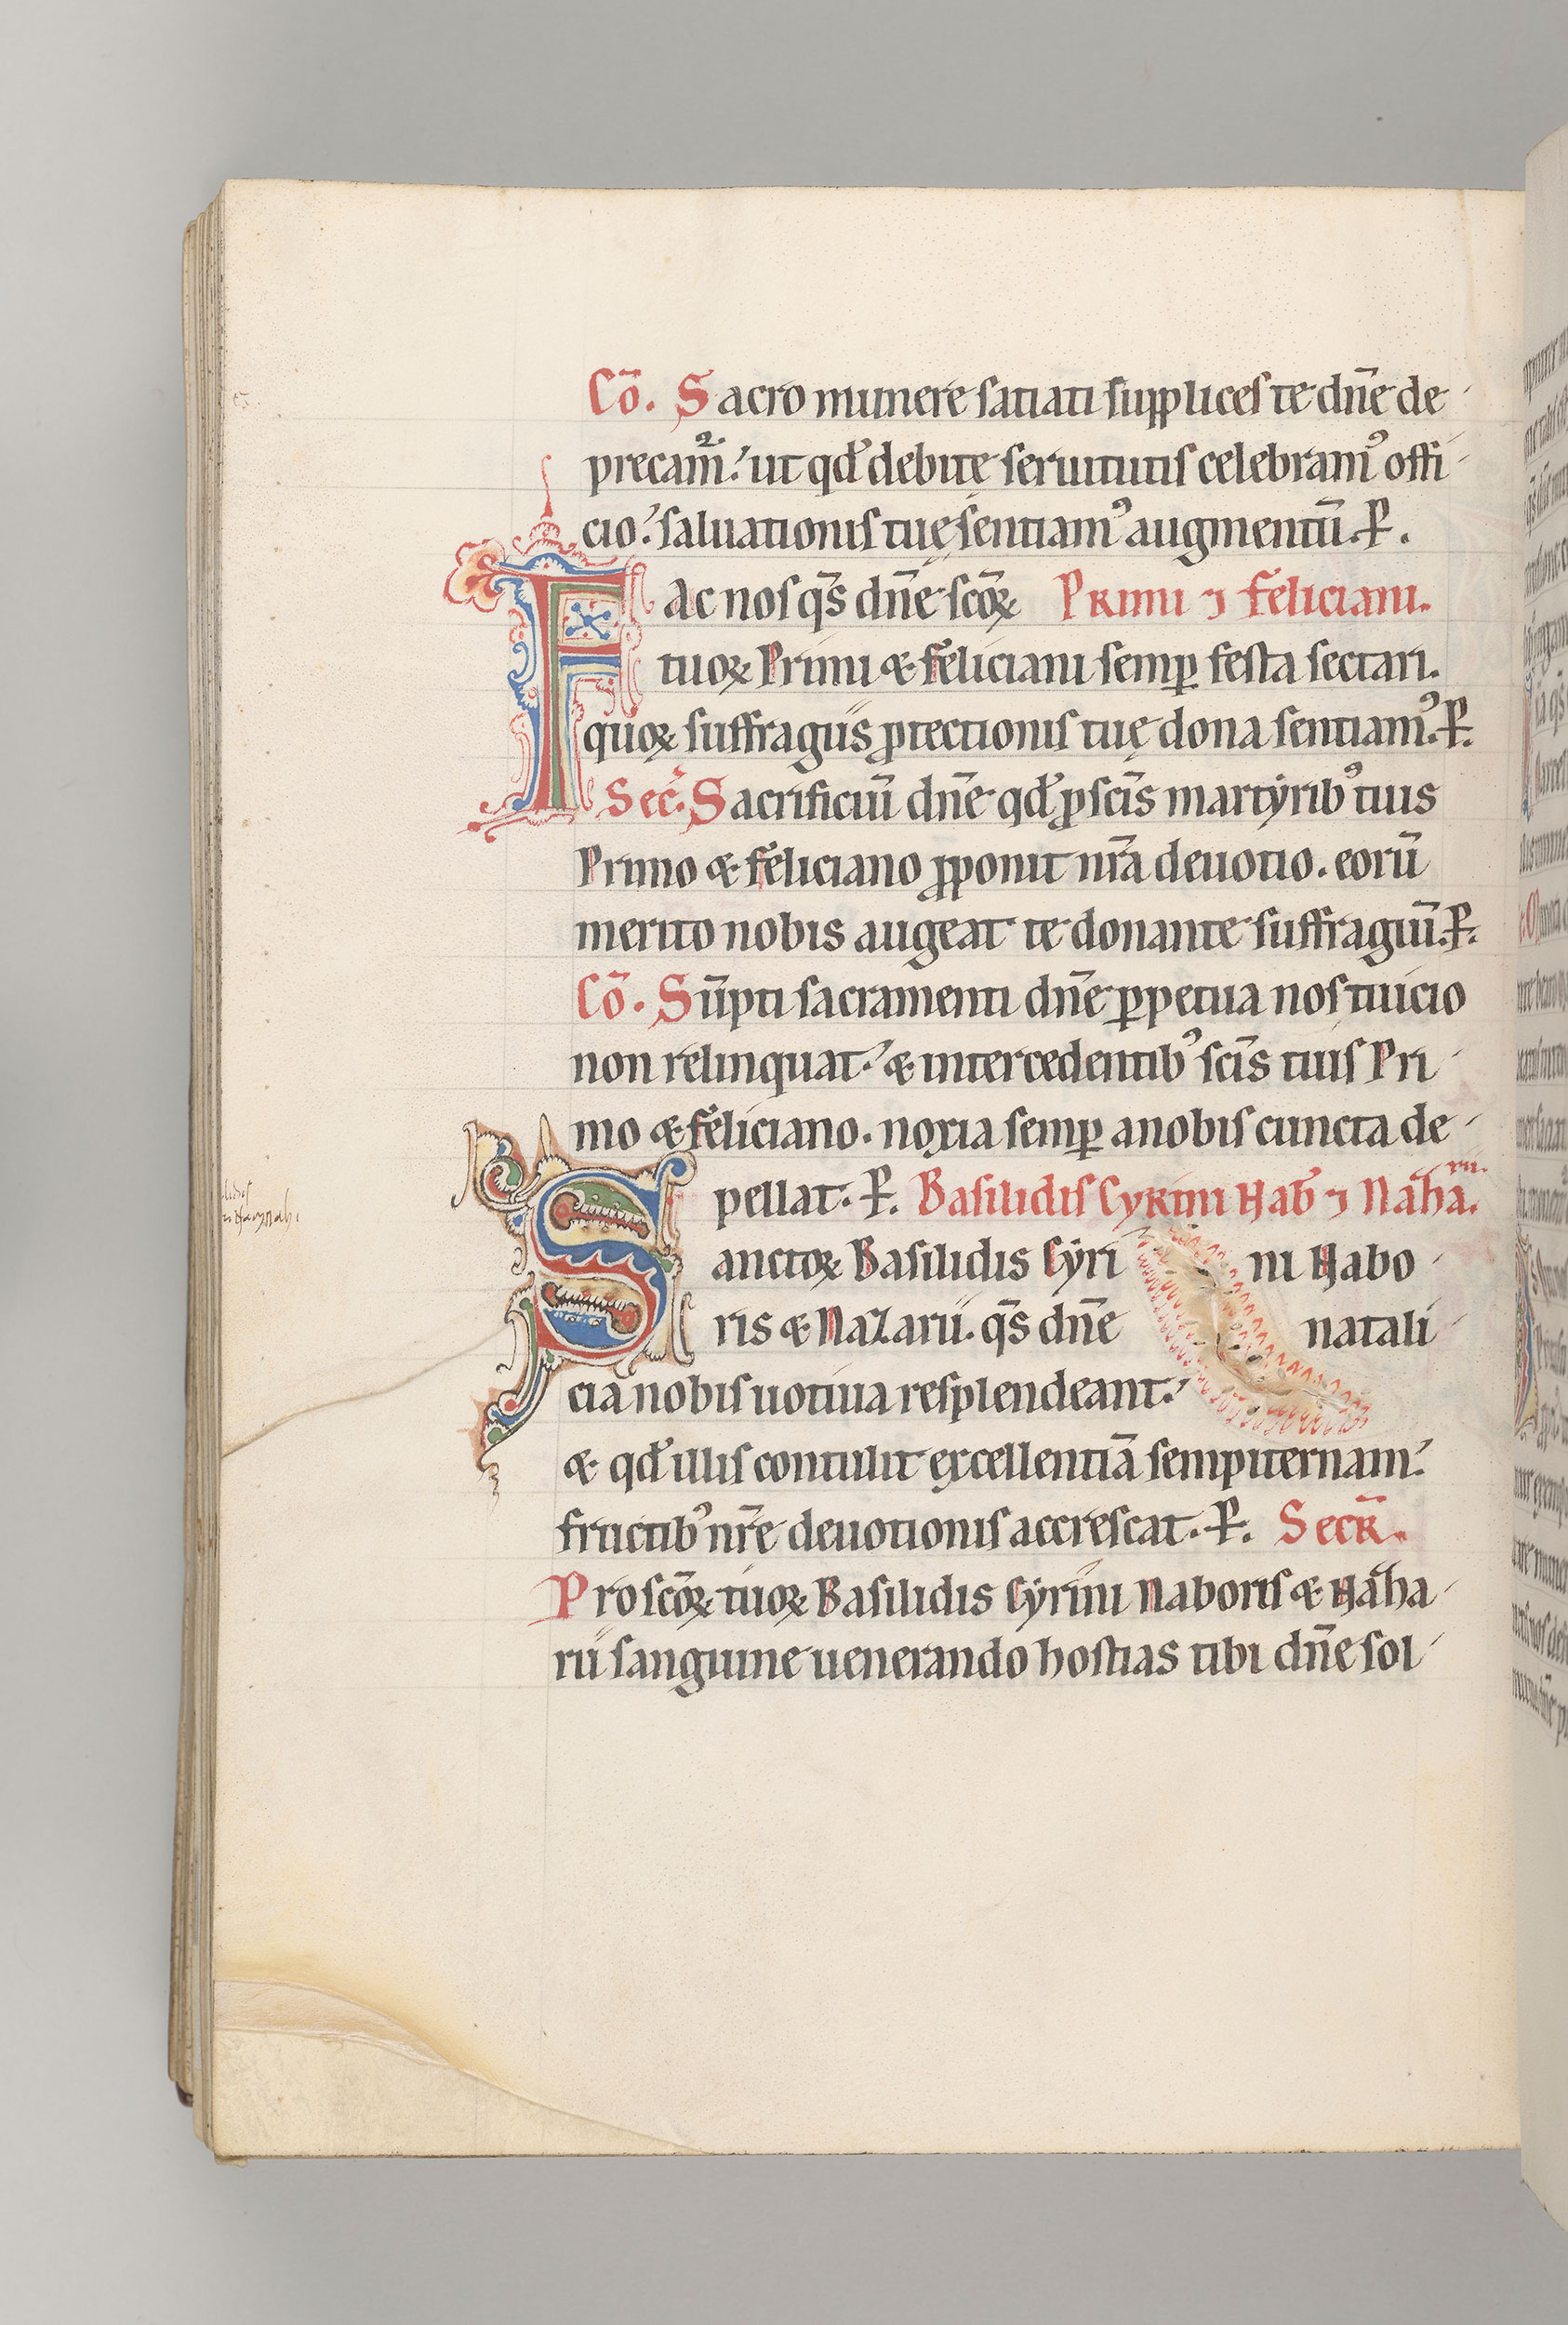 Cō. Sacro munere satiati supplices te dn̄e de
precam̄ʳ. ut qd̓ debitę seruitutis celebram᾽ offi
cio. saluationis tuę sentiam᾽ augmentū. P̵.
Fac nos qs̄ dn̄e sc̄oꝝ Primi ⁊ Feliciani.
tuoꝝ Primi & Feliciani semꝑ festa sectari.
quoꝝ suffragiis ꝓtectionis tuę dona sentiam᾽. P̵.
Sec̄. Sacrificiū dn̄e qd̓ ꝓ sc̄is martyrib᾽ tuis
Primo & Feliciano ꝓponit nr̄a deuotio. eorū
merito nobis augeat te donante suffragiū. P̵.
Cō. Sūpti sacramenti dn̄e ꝑpetua nos tuicio
non relinquat. & intercedentib᾽ sc̄is tuis Pri
mo & Feliciano. noxia semꝑ a nobis cuncta de
pellat. P̵. Basilidis Cyrini Nab̄ ⁊ Naʒha.
rii.
Sanctoꝝ Basilidis Cyri ni Nabo
ris & Nazarii. qs̄ dn̄e natali
cia nobis uotiua resplendeant.
& qd̓ illis contulit excellentiā sempiternam.
fructib᾽ nr̄e deuotionis accrescat. P̵. Secr̄.
Pro sc̄oꝝ tuoꝝ Basilidis Cyrini Naboris & Naʒha
rii sanguine uenerando hostias tibi dn̄e sol